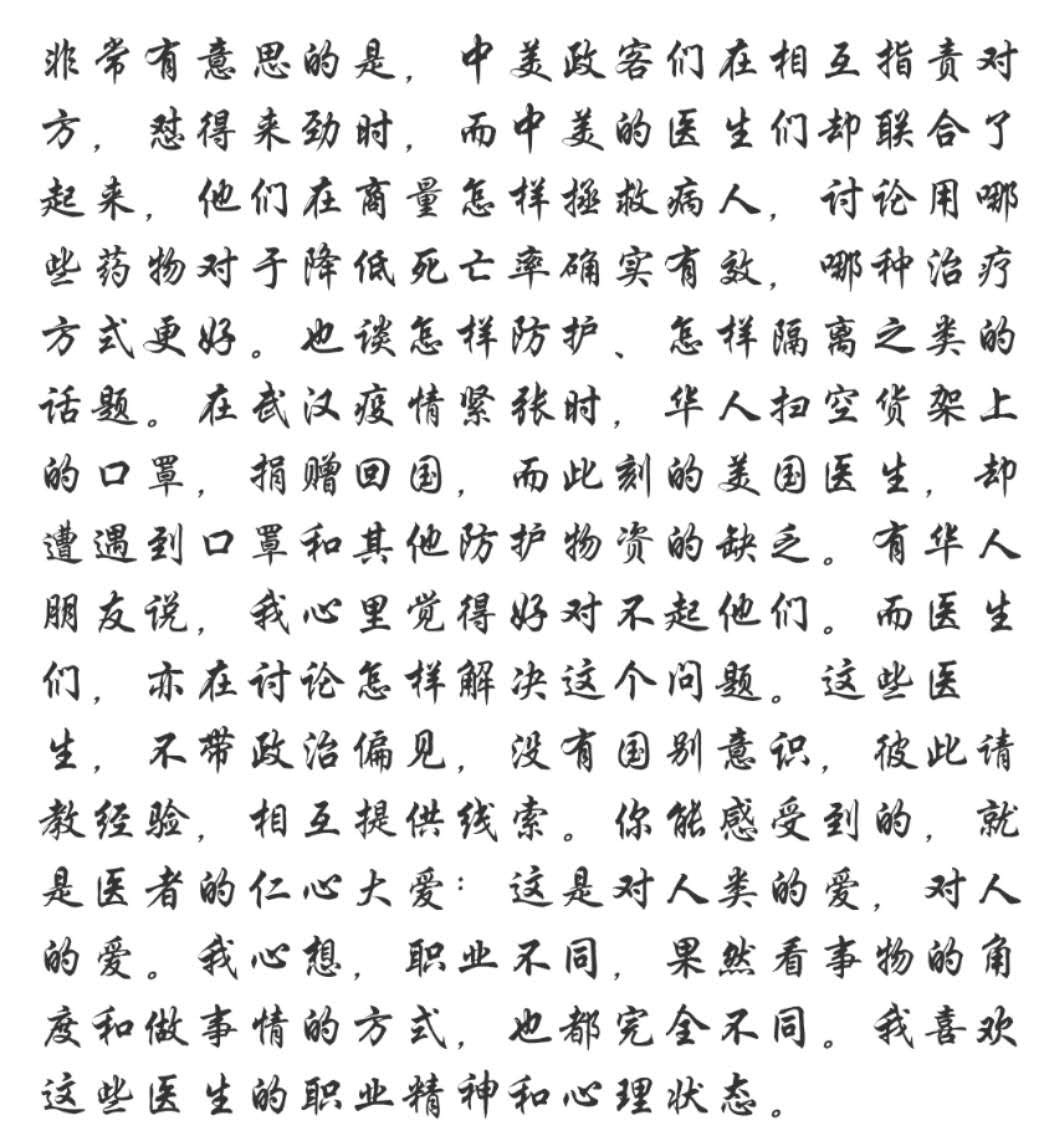 非常有意思的是，中美政客们在相互指责对
方，怼得来劲时，而中美的医生们却联合了
起来，他们在商量怎样拯救病人，讨论用哪
些药物对于降低死亡率确实有效，哪种治疗
方式更好。也谈怎样防护、怎样隔离之类的
话题。在武汉疫情紧张时，华人扫空货架上
的口罩，捐赠回国，而此刻的美国医生，却
遭遇到口罩和其他防护物资的缺乏。有华人
朋友说，我心里觉得好对不起他们。而医生
们，亦在讨论怎样解决这个问题。这些医
生，不带政治偏见，没有国别意识，彼此请
教经验，相互提供线索。你能感受到的，就
是医者的仁心大爱：这是对人类的爱，对人
的爱。我心想，职业不同，果然看事物的角
度和做事情的方式，也都完全不同。我喜欢
这些医生的职业精神和心理状态。